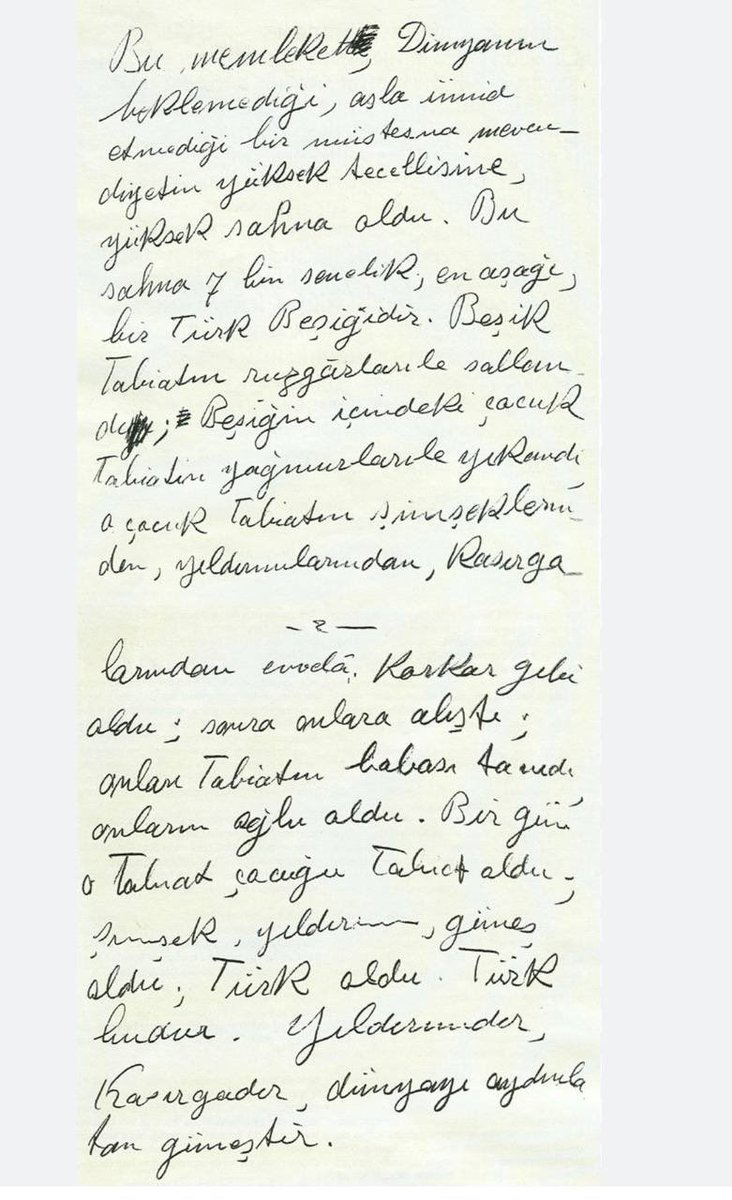 Bu memleket, Dünyanın
beklemediği, asla ümid
etmediği bir müstesna mevcu-
diyetin yüksek tecellisine,
yüksek sahna oldu. Bu
sahna 7 bin senelik, en aşağı,
bir Türk Beşiğidir. Beşik
Tabiatın ruzgârlarile sallan-
dı; Beşiğin içindeki çocuk
Tabiatın yağmurlarile yıkandı,
o çocuk Tabiatın şimşeklerin-
den, yıldırımlarından, Kasırga-
- 2 -
larından evvelâ, Korkar gibi
oldu; sonra onlara alıştı;
onları Tabiatın babası tanıdı,
onların oğlu oldu. Bir gün
o Tabiat çocuğu Tabiat oldu;
Şimşek, yıldırım, güneş
oldu; Türk oldu. Türk
budur. Yıldırımdır,
Kasırgadır, dünyayı aydınla
tan güneştir.